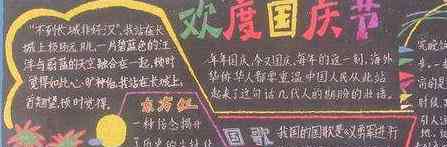 欢度国庆节
"不到长城非好汉",我站在长
城上极目远眺,一片碧蓝色的汪
洋与蔚蓝的天空融合在一起,顿时
觉得如此心旷神怡,我站在长城上,
首翘望,顿时觉得,
年年国庆,今又国庆,每年的这一刻,海外
华侨华人都要重温中国人民从此站
起来了这句话几代人的期盼的壮语。
东方红
一种信念揭开
了历史的
国歌
我国的国歌是《义勇军进行